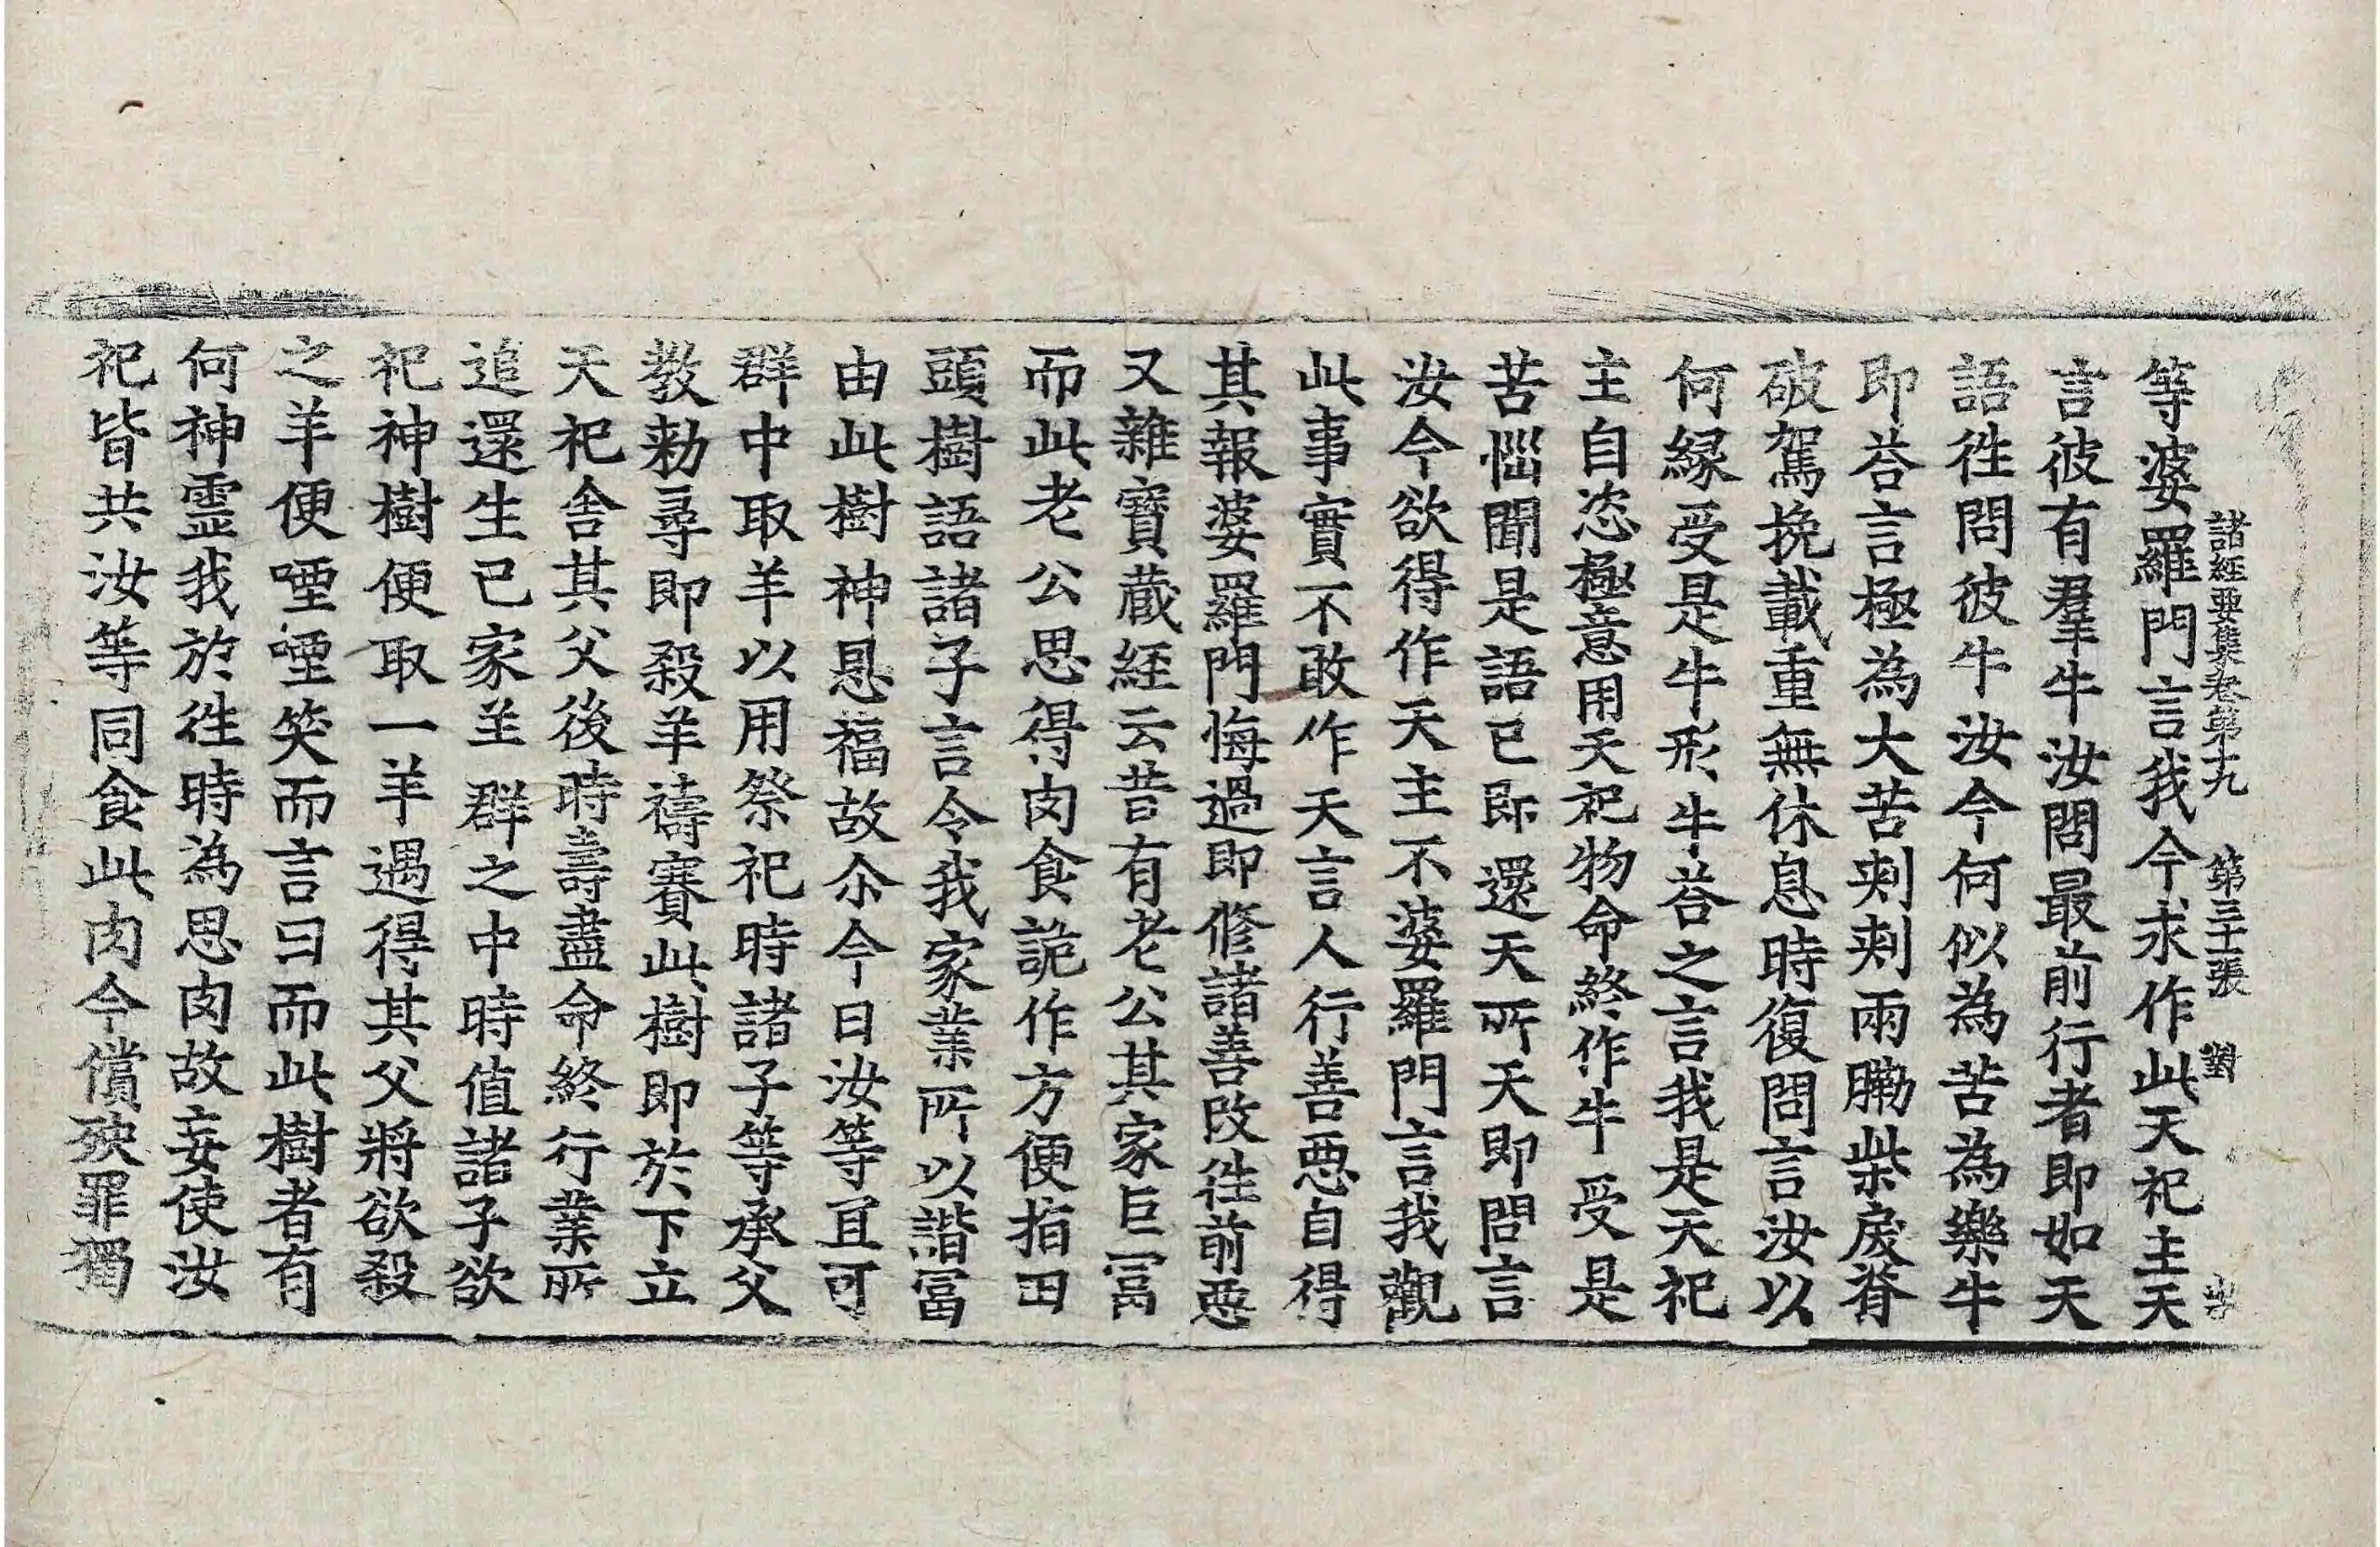 諸經要集卷第十九 第三十張 對
等婆羅門言我今求作此天祀主天
言彼有羣牛汝問最前行者即如天
語徃問彼牛汝今何似為苦為樂牛
即荅言極為大苦刾刾兩肋柴戾脊
破駕挽載重無休息時復問言汝以
何緣受是牛形牛荅之言我是天祀
主自恣極意用天祀物命終作牛受是
苦惱聞是語已即還天所天即問言
汝今欲得作天主不婆羅門言我觀
此事實不敢作天言人行善惡自得
其報婆羅門悔過即修諸善改徃前惡
又雜寶蔵經云昔有老公其家巨冨
而此老公思得肉食詭作方便指田
頭樹語諸子言令我家業所以諧冨
由此樹神恩福故尒今日汝等冝可
群中取羊以用祭祀時諸子等承父
教勑尋即殺羊禱賽此樹即於下立
天祀舎其父後時壽盡命終行業所
追還生己家羊群之中時值諸子欲
祀神樹便取一羊遇得其父將欲殺
之羊便㗌㗌笑而言曰而此樹者有
何神靈我於徃時為思肉故妄使汝
祀皆共汝等同食此肉今償殃罪獨